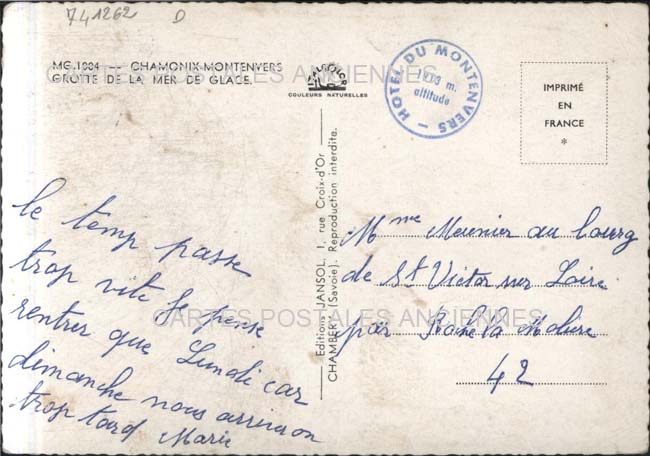 741262 D
MG.1004 -- CHAMONIX-MONTENVERS
GROTTE DE LA MER DE GLACE.
COULEURS NATURELLES
HOTEL DU MONTENVERS
1913 m.
altitude
IMPRIMÉ
EN
FRANCE
*
Editions JANSOL, 1, rue Croix-d'Or
CHAMBÉRY (Savoie). Reproduction interdite.
CARTES POSTALES ANCIENNES
CARTES POSTALES ANCIENNES
le temp passe
trop vite Je pense
rentrer que Lundi car
dimanche nous arriveron
trop tard Marie
Mme Meunier au bourg
de St Victor sur Loire
par Roche la Molière
42